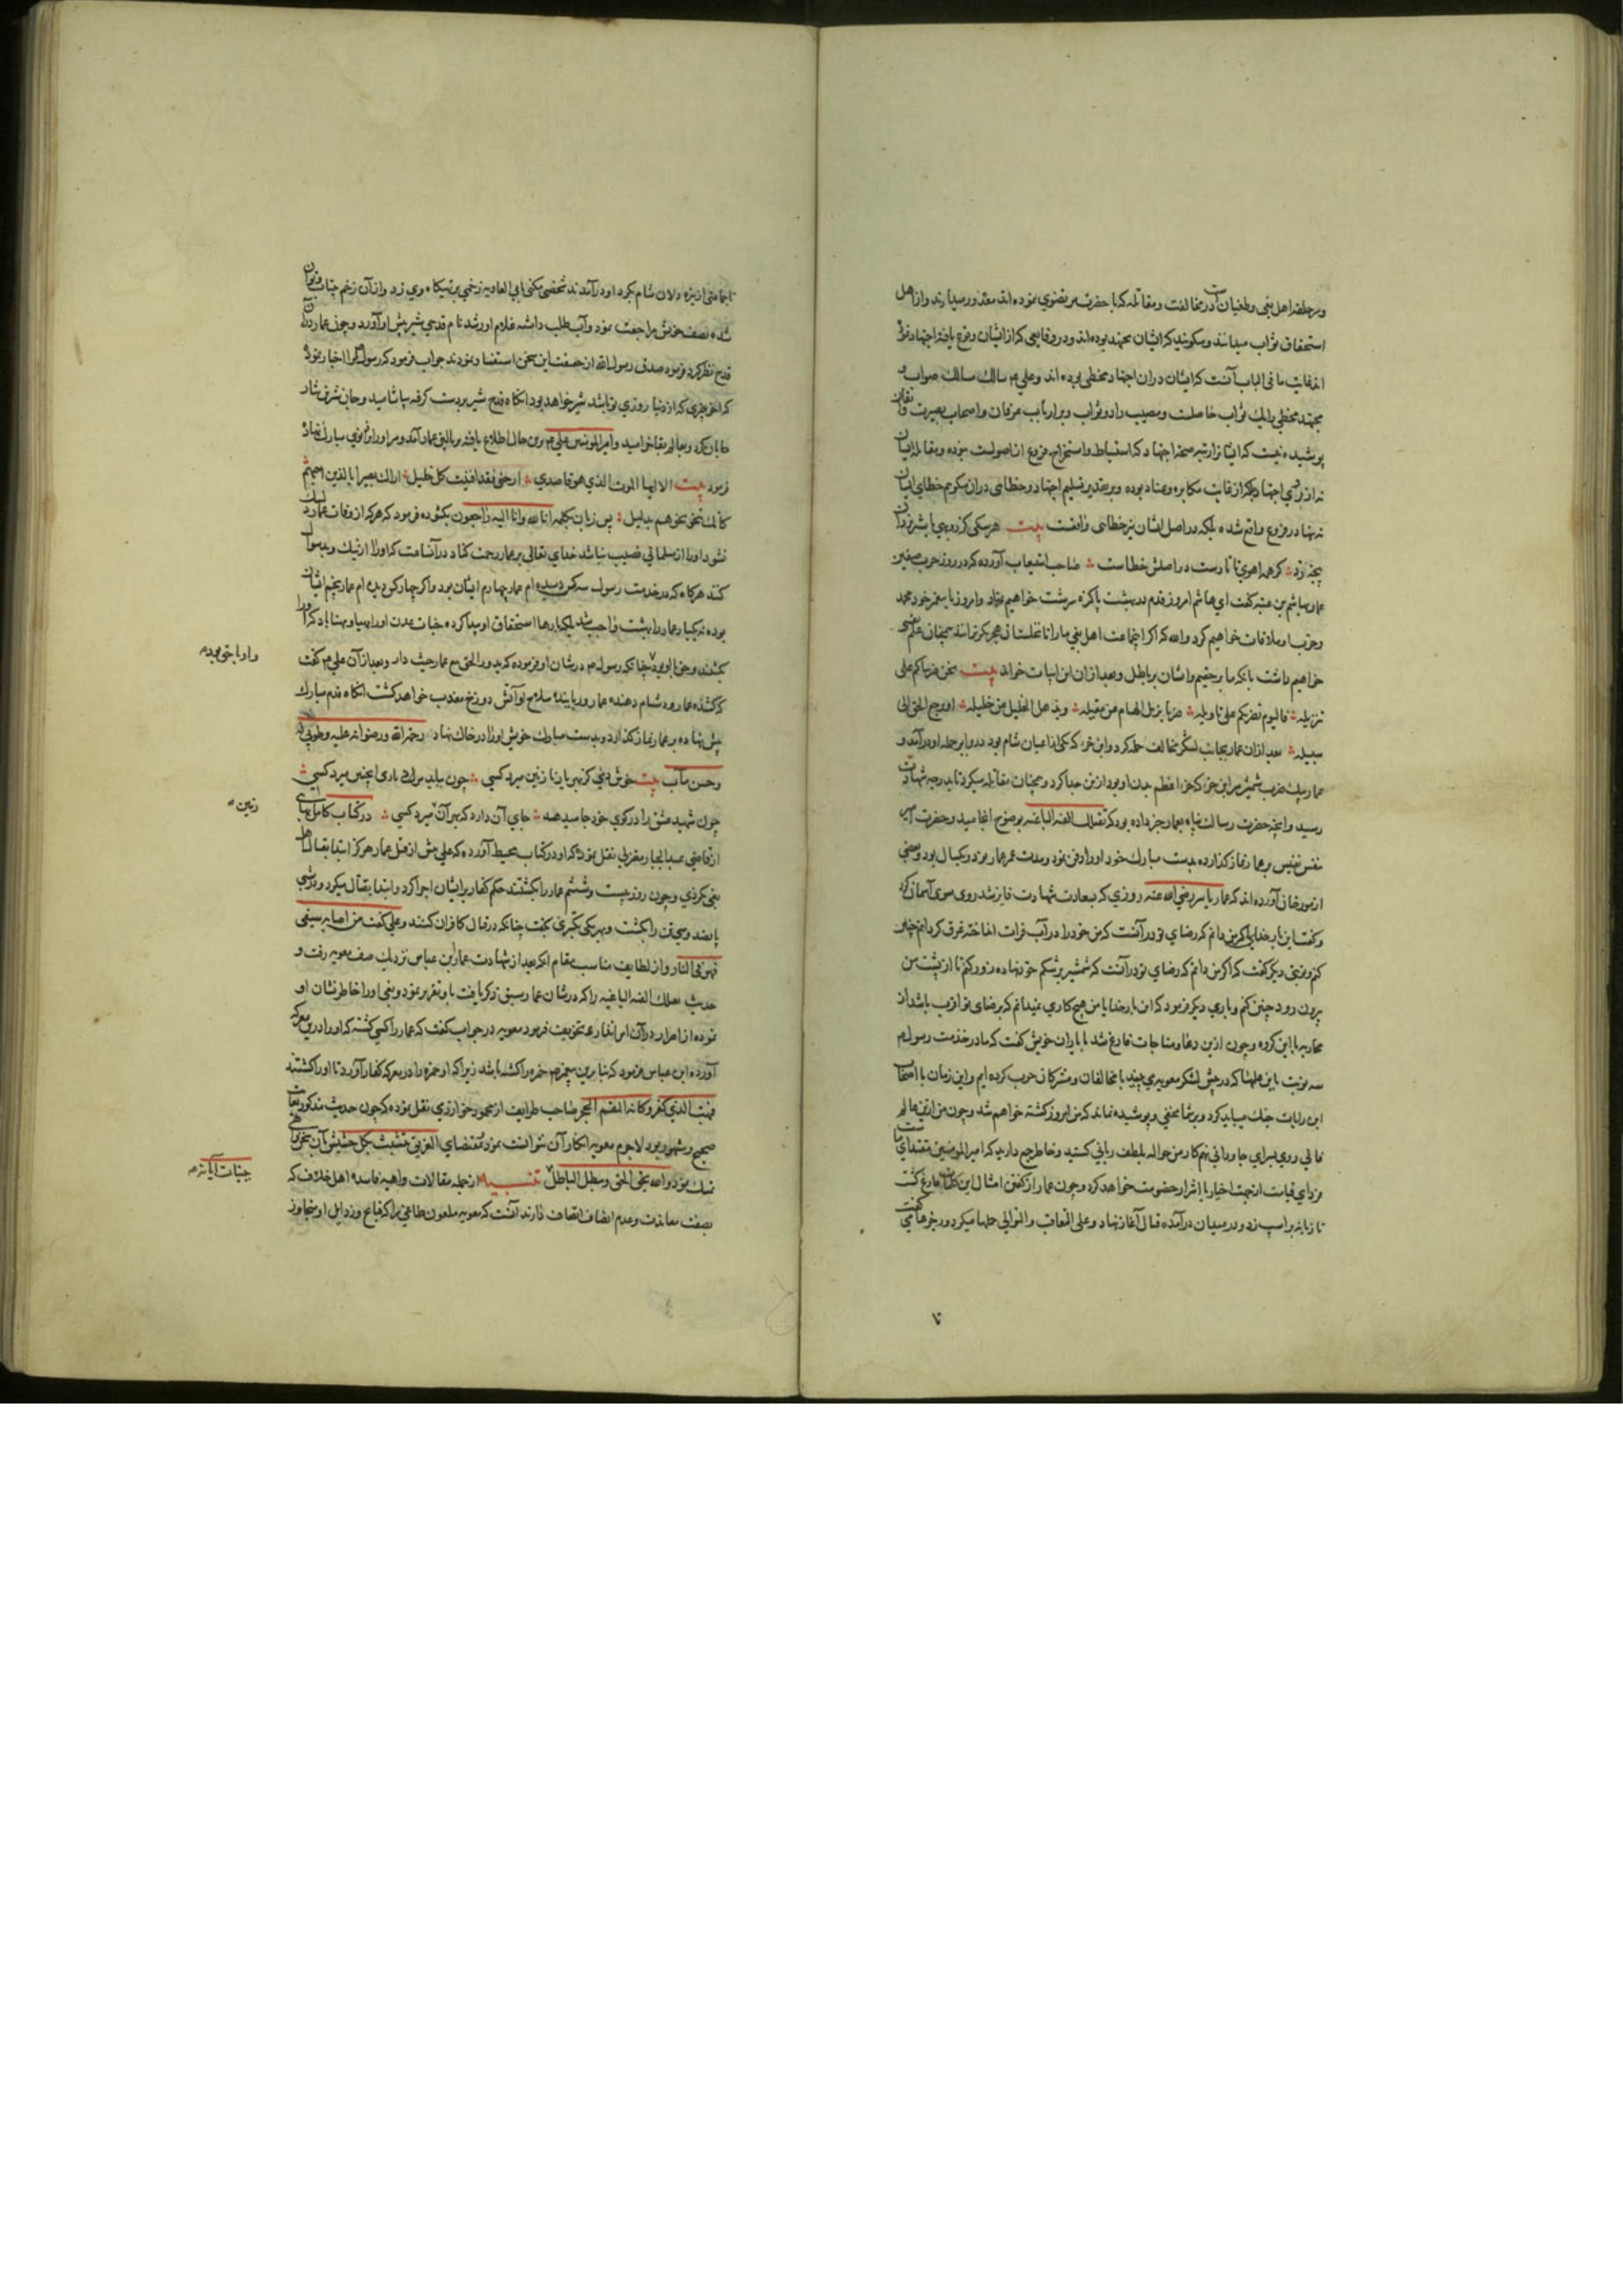 و مرحله اهل بغی و طغیان است در مخالفت و مقاتله که با حضرت مرتضوی نموده اند معذور میدارند و از اهل
استحقاق ثواب میدانند و میگویند که ایشان مجتهد بوده اند و در وقایعی که از ایشان وقوع یافته اجتهاد نمود
اند غایت ما فی الباب آنست که ایشان در آن اجتهاد مخطی بوده اند و علی م سالک مسالک صواب و
مجتهد مخطی را یک ثواب حاصلست و مصیب را دو ثواب و بر ارباب عرفان و اصحاب بصیرت و
پوشیده نیست که مرتبه صحة اجتهاد که استنباط و استخراج فروع از اصولست نبوده و مقاتله ایشان
نه از روی اجتهاد بلکه از غایت مکابره و عناد بوده و بر تقدیر تسلیم اجتهاد و خطای در آن میگویم خطای ایشان
نه تنها در فروع واقع شده بلکه در اصل ایشان نیز خطایی واقعست بیت هر سکی کز روبهی با شیر یزدان
پنجه زد کر همه اهوی تاتارست در اصلش خطاست صاحب استیعاب آورده که در روز حرب صفین
عمار بهاشم بن عتبه کفت ای هاشم امروز قدم در بهشت پاکزه سرشت خواهیم نهاد و امروز با پیغمبر خود محمد
و حزب او ملاقات خواهیم کرد والله که اکر اجماعت اهل بغی ما را تا نخلستان هجر بکریزانند همچنان علم یقینی
خواهیم داشت بانکه ما بر حقیم و ایشان بر باطل و بعد از ان این ابیات خواند بیت نحن ضربناکم علی
تنزیله فالیوم نضربکم علی تاویله ضربا یزیل الهام عن مقیله و یذهل الخلیل من خلیله او یرجع الحق الی
سبیله بعد ازان عمار بجانب لشکر مخالف حمله کرد و ابن که یکی از اعیان شام بود در برابر حمله او در آمد و
عمار بیک ضرب شمشیر سر ابن را که جزء اعظم بدن او بود از تن جدا کرد و همچنان مقاتله میکرد تا بدرجه شهادت
رسید و انچه حضرت رسالت پناه بعمار خبر داده بود که تقتلک الفئة الباغیه بوضوح انجامید و حضرت امیر
بنفس نفیس بر عمار نماز کذارده بدست مبارک خود او را دفن نمود و مدت عمر عمار نود و یکسال بود و بعضی
از مورخان آورده اند که عمار یاسر رضی الله عنه روزی که بسعادت شهادت فایز شد روی سوی آسمان کرد
و کفت ای بار خدای اکر من دانم که رضای تو در آنست که من خود را در آب فرات انداخته غرق کردانم چنین
کنم و نوبتی دیگر کفت که اکر من دانم که رضای تو در آنست که شمشیر بر شکم خود نهاده زور کنم تا از پشت من
بیرون رود چنین کنم و باری دیکر فرمود که ای بار خدایا من هیچ کاری نمیدانم که برضای تو اقرب باشد از
محاربه با این کروه و چون ازین دعا و مناجات فارغ شد با یاران خویش کفت که ما در خدمت رسول م
سه نوبت باین علمها که در جیش لشکر معویه می بینید با مخالفان و مشرکان حرب کرده ایم و این زمان با اصحاب
این رایات جنک میباید کرد و بر شما مخفی و پوشیده نماند که من امروز کشته خواهم شد و چون من ازین عالم
فانی روی بسرای جاودانی نهم کار من حواله بلطف ربانی کنید و خاطر جمع دارید که امیر المؤمنین مقتدای ماست
فردای قیامت از جهة اخیار با اشرار خصومت خواهد کرد و چون عمار از کفتن امثال این کلمات فارغ کشت
تازیانه بر اسب زد و در میدان در آمده قتال آغاز نهاد و علی التعاقب و التوالی حملها میکرد و رجزها میکفت
تا جماعتی از تیره دلان شام بکرد او در آمدند و شخصی مکنی بابی العادیه زخمی بر تهیکاه وی زد و از آن زخم بیتاب و
شده بصف خویش مراجعت نمود و آب طلب داشته غلام او رشد نام قدحی شیر پیش او آورد و چون عمار در آن
قدح نظر کرد فرمود صدق رسول الله از حقیقت این سخن استفسار نمودند جواب فرمود که رسول م مرا اخبار نموده
که آخر چیزی که از دنیا روزی تو باشد شیر خواهد بود انکاه قدح شیر بر دست کرفته بیاشامید و جان شیرین نثار
جانان کرد و بعالم بقا خرامید و امیر المؤمنین علی م برین حال اطلاع یافته ببالین عمار آمد و سر او را بر زانوی مبارک نهاد
فرمود بیت الا ایها الموت الذی هو قاصدی ارحنی فقد افنیت کل خلیل اراک بصیرا بالذین احبهم
کانک تنحو نحوهم بدلیل پس زبان بکلمه انا لله و انا الیه راجعون بکشوده فرمود که هر که از وفات عمار دلتنک
نشود او را از مسلمانی نصیب نباشد خدای تعالی بر عمار رحمت کناد در آنساعت که او را از نیک و بد سوال
کنند هرکاه که در خدمت رسول سه کس دیده ام عمار چهارم ایشان بود و اکر چهار کس دیده ام عمار پنجم ایشان
بوده نه یکبار عمار را بهشت واجب شد بلکه بارها استحقاق او پیدا کرده جنات عدن او را مهیا و مهنا باد که او را
بکشند و حق با او بود چنانکه رسول م در شان او فرموده که یدور الحق مع عمار حیث دار و بعد از آن علی م کفت
که کشنده عمار و دشنام دهنده عمار و رباینده سلاح او بآتش دوزخ معذب خواهد کشت انکاه قدم مبارک
پیش نهاده بر عمار نماز کذارد و بدست مبارک خویش او را در خاک نهاد رحمة الله و رضوانه علیه و طوبی له
و حسن مآب بیت خوش دمی کز بهر یار نازنین میرد کسی چون بباید مرد باری اینچنین میرد کسی
چون شهید عشق را در کوی خود جا میدهند جای آن دارد که بهر آن میرد کسی در کتاب کامل بهایی
از قاضی عبد الجبار معتزلی نقل نموده که او در کتاب محیط آورده که علی پیش از قتل عمار هرکز ابتدا بقتال اهل
بغی نکردی و چون روز بیست و ششم عمار را بکشتند حکم کفار بر ایشان اجرا کرد و ابتدا بقتال میکرد و در شبی
پانصد و سی تن را بکشت و بهر یکی تکبیری بکفت چنانکه در قتال کافران کنند و علی کفت من اصابه سیفی
فهو فی النار و از لطایف مناسب مقام انکه بعد از شهادت عمار ابن عباس نزدیک صف معویه رفت و
حدیث تقتلک الفئة الباغیه را که در شان عمار سبق ذکر یافت باو تقریر نمود و بغی او را خاطر نشان او
نموده از اصرار در آن امر انذار و تخویف فرمود معویه در جواب کفت که عمار را کسی کشته که او را درین معرکه
آورده ابن عباس فرمود که بنابرین پیغمبر م حمزه را کشته باشد زیرا که او حمزه را در معرکه کفار آورد تا او را کشتند
فبهت الذی کفر و کانه القم الحجر صاحب طرایف از محمود خوارزمی نقل نموده که چون حدیث مذکور بغایت
صحیح و مشهور بود لاجرم معویه انکار آن نتوانست نمود بمقتضای الغریق یتشبث بکل حشیش بآن سخن واهی
تمسک نمود والله یحق الحق و یبطل الباطل تنبیه از جمله مقالات واهیه فاسده اهل خلاف که
بصفت معاندت و عدم انصاف اتصاف دارند آنست که معویه ملعون طاغی را که قبایح و رذایل او متجاوز